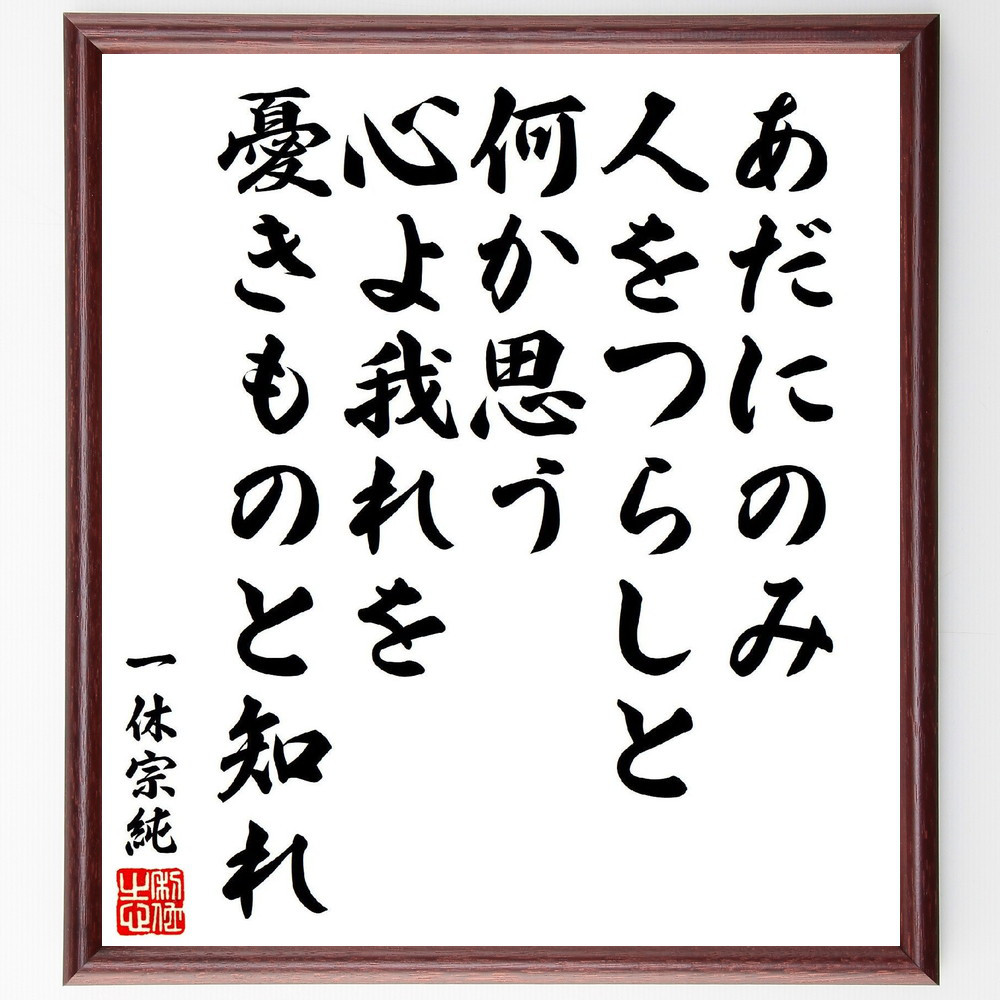 あだにのみ
人をつらしと
何か思う
心よ我れを
憂きものと知れ
一休宗純